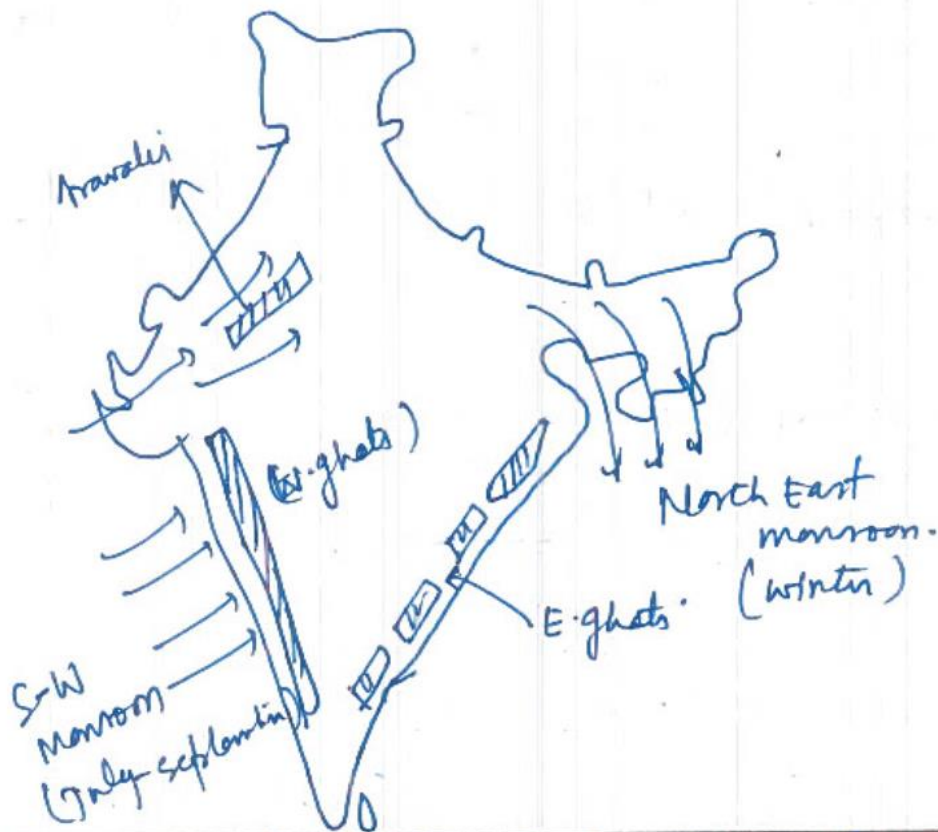 Aravalis
(W.ghats)
North East
monsoon.
(winter)
E.ghats.
S-W
Monsoon
(July-September)